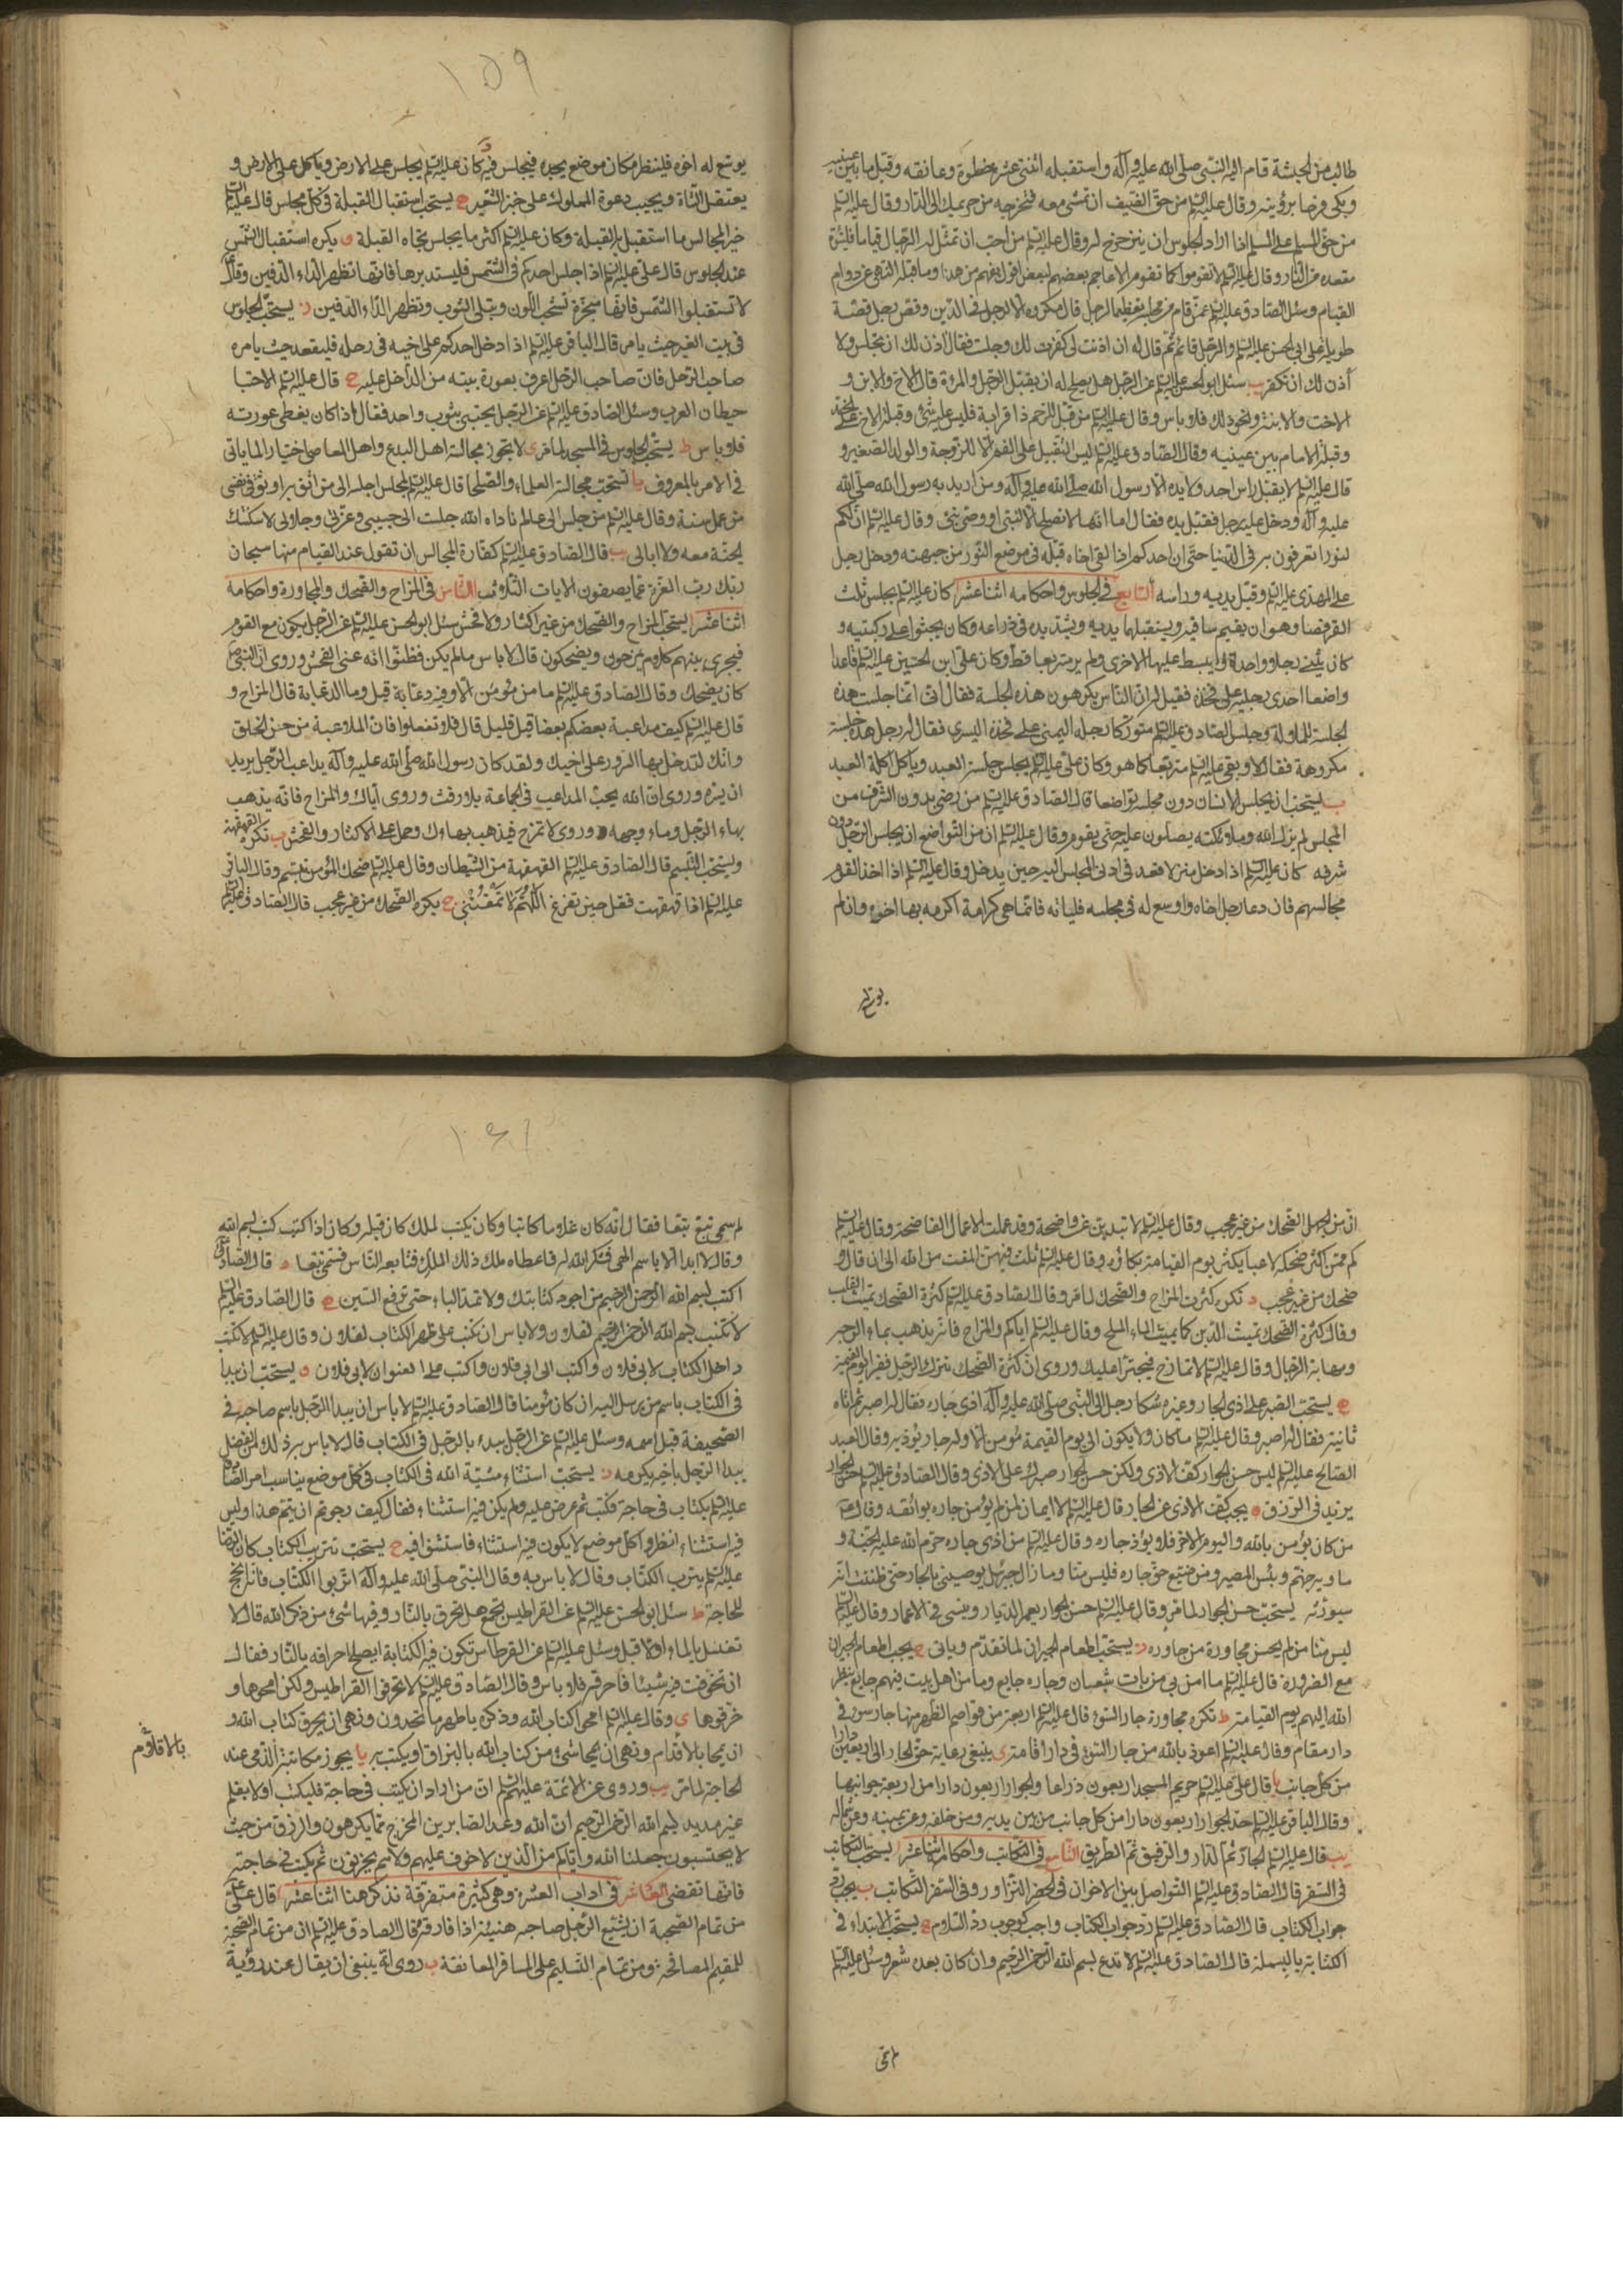 طالب من الحبشة قام اليه النبي صلى الله عليه وآله واستقبله اثنتى عشر خطوة وعانقه وقبل ما بين عينيه
وبكى فرحا برؤيته وقال عليه السلم من حق الضيف ان تمشى معه فتخرجه من حريمك الى الدار وقال عليه السلم
من حق المسلم على المسلم اذا اراد الجلوس ان يتزحزح له وقال عليه السلم من احب ان تمثل له الرجال قياما فليتبوء
مقعده من النار وقال عليه السلم لا تقوموا كما تقوم الاعاجم بعضهم لبعض اقول يفهم من هذا وما قبله النهى عن دوام
القيام وسئل الصادق عليه السلم عمن قام من مجلسه تعظيما لرجل قال مكروه الا لرجل في الدين وقص رجل قصة
طويلة على ابى الحسن عليه السلم والرجل قائم ثم قال له ان اذنت لى كفرت لك وجلست فقال آذن لك ان تجلس ولا
أذن لك ان تكفر ب سئل ابو الحسن عليه السلم عن الرجل هل يصلح له ان يقبل الرجل والمروة قال الاخ والابن و
الاخت والابنة ونحو ذلك فلا باس وقال عليه السلم من قبل للرحم ذا قرابة فليس عليه شئ وقبلة الاخ على الخد
وقبلة الامام بين عينيه وقال الصادق عليه السلم ليس القبل على الفم الا للزوجة والولد الصغير و
قال عليه السلم لا يقبل راس احد ولا يده الا رسول الله صلى الله عليه وآله ومن اريد به رسول الله صلى الله
عليه وآله ودخل عليه رجل فقبل يده فقال اما انها لا تصلح الا لنبى او وصى نبى وقال عليه السلم ان لكم
لنورا تعرفون به في الدنيا حتى ان احدكم اذا لقى اخاه قبله في موضع النور من جبهته ودخل رجل
على المهدى عليه السلم وقبل يديه وراسه السابع في الجلوس واحكامه اثنا عشر ا كان عليه السلم يجلس ثلث
القرفصا وهو ان يقيم ساقيه ويستقبلهما بيديه ويشد يده في ذراعه وكان يجثوا على ركبتيه و
كان يثنى رجلا واحدة ويبسط عليها الاخرى ولم ير متربعا قط وكان على ابن الحسين عليه السلم قاعدا
واضعا احدى رجليه على فخذه فقيل له ان الناس يكرهون هذه الجلسة فقال انى انما جلست هذه
الجلسة للملالة وجلس الصادق عليه السلم متوركا رجله اليمنى على فخذه اليسرى فقال له رجل هذه جلسة
مكروهة فقال لا وبقى عليه السلم متربعا كما هو وكان على عليه السلم يجلس جلسة العبد وياكل اكلة العبد
ب يستحب ان يجلس الانسان دون مجلسه تواضعا قال الصادق عليه السلم من رضى بدون الشرف من
المجلس لم يزل الله وملائكته يصلون عليه حتى يقوم وقال عليه السلم ان من التواضع ان يجلس الرجل دون
شرفه كان عليه السلم اذا دخل منزلا قعد في ادنى المجلس اليه حين يدخل وقال عليه السلم اذا اخذ القوم
مجالسهم فان دعا رجل اخاه واوسع له في مجلسه فلياته فانما هى كرامة اكرمه بها اخوه وان لم
يوسع له
١٥٩
يوسع له اخوه فلينظر مكان موضع يجده فيجلس فيه كان عليه السلم يجلس على الارض وياكل على الارض و
يعتقل الشاة ويجيب دعوة المملوك على خبز الشعير ح يستحب استقبال القبلة في كل مجلس قال عليه السلم
خير المجالس ما استقبل به القبلة وكان عليه السلم اكثر ما يجلس تجاه القبلة و يكره استقبال الشمس
عند الجلوس قال على عليه السلم اذا جلس احدكم في الشمس فليستدبرها فانها تظهر الداء الدفين وقال
لا تستقبلوا الشمس فانها مبخرة تشحب اللون وتبلى الثوب وتظهر الداء الدفين ز يستحب الجلوس
في بيت الغير حيث يامر قال الباقر عليه السلم اذا دخل احدكم على اخيه في رحله فليقعد حيث يامره
صاحب الرحل فان صاحب الرحل اعرف بعورة بيته من الداخل عليه ح قال عليه السلم الاحتبا
حيطان العرب وسئل الصادق عليه السلم عن الرجل يحتبى بثوب واحد فقال اذا كان يغطى عورته
فلا باس ط يستحب الجلوس في المسجد لما مر ى لا تجوز مجالسة اهل البدع واهل المعاصى اختيارا لما ياتى
في الامر بالمعروف يا تستحب مجالسة العلماء والصلحا قال عليه السلم لمجلس اجلسه الى من اثق به اوثق في نفسى
من عمل سنة وقال عليه السلم من جلس الى عالم ناداه الله جلست الى حبيبى وعزتى وجلالى لاسكنتك
الجنة معه ولا ابالى يب قال الصادق عليه السلم كفارة المجالس ان تقول عند القيام منها سبحان
ربك رب العزة عما يصفون الايات الثلاث الثامن في المزاح والضحك والمجاورة واحكامه
اثنا عشر ا يستحب المزاح والضحك من غير اكثار ولا فحش سئل ابو الحسن عليه السلم عن الرجل يكون مع القوم
فيجرى بينهم كلام يمزحون ويضحكون قال لا باس ما لم يكن فظننا انه عنى الفحش وروى ان النبى ص
كان يضحك وقال الصادق عليه السلم ما من مؤمن الا وفيه دعابة قيل وما الدعابة قال المزاح و
قال عليه السلم كيف مداعبة بعضكم بعضا قيل قليل قال فلا تفعلوا فان الملاعبة من حسن الخلق
وانك لتدخل بها السرور على اخيك ولقد كان رسول الله صلى الله عليه وآله يداعب الرجل يريد
ان يسره وروى ان الله يحب المداعب في الجماعة بلا رفث وروى اياك والمزاح فانه يذهب
بهاء الرجل وماء وجهه وروى لا تمزح فيذهب بهاءك وحمل على الاكثار والفحش ب تكره القهقهة
ويستحب التبسم قال الصادق عليه السلم القهقهة من الشيطان وقال عليه السلم ضحك المؤمن تبسم وقال الباقر
عليه السلم اذا قهقهت فقل حين تفرغ اللهم لا تمقتنى ج يكره الضحك من غير عجب قال الصادق عليه السلم
ان من الجهل الضحك من غير عجب وقال عليه السلم لا تبدين عن واضحة وقد عملت الاعمال الفاضحة وقال عليه السلم
كم ممن اكثر ضحكه لاعبا يكثر يوم القيامة بكاؤه وقال عليه السلم ثلث فيهن المقت من الله الى ان قال و
ضحك من غير عجب د تكره كثرت المزاح والضحك لما مر وقال الصادق عليه السلم كثرة الضحك تميت القلب
وقال كثرة الضحك تميث الدين كما يميث الماء الملح وقال عليه السلم اياكم والمزاح فانه يذهب بماء الوجه
ومهابة الرجال وقال عليه السلم لا تمازح فيجترأ عليك وروى ان كثرة الضحك تترك الرجل فقيرا يوم القيمة
ه يستحب الصبر على اذى الجار وغيره شكا رجل الى النبى صلى الله عليه وآله اذى جاره فقال له اصبر ثم اتاه
ثانية فقال له اصبر وقال عليه السلم ما كان ولا يكون الى يوم القيمة مؤمن الا وله جار يؤذيه وقال العبد
الصالح عليه السلم ليس حسن الجوار كف الاذى ولكن حسن الجوار صبرك على الاذى وقال الصادق عليه السلم حسن الجوار
يزيد في الرزق و يجب كف الاذى عن الجار قال عليه السلم لا ايمان لمن لم يؤمن جاره بوائقه وقال
من كان يؤمن بالله واليوم الاخر فلا يؤذ جاره وقال عليه السلم من اذى جاره حرم الله عليه الجنة و
ماويه جهنم وبئس المصير ومن ضيع حق جاره فليس منا وما زال جبرئيل يوصينى بالجار حتى ظننت انه
سيورثه يستحب حسن الجوار لما مر وقال عليه السلم حسن الجوار يعمر الديار وينسى في الاعمار وقال عليه السلم
ليس منا من لم يحسن مجاورة من جاوره ز يستحب اطعام الجيران لما تقدم وياتى ح يجب اطعام الجيران
مع الضرورة قال عليه السلم ما امن بى من بات شبعان وجاره جايع وما من اهل بيت فيهم جايع ينظر
الله اليهم يوم القيامة ط تكره مجاورة جار السوء قال عليه السلم اربعة من قواصم الظهر منها جار سوء في
دار مقام وقال عليه السلم اعوذ بالله من جار السوء في دار اقامة ى ينبغى رعاية حق الجار الى اربعين دارا
من كل جانب يا قال على عليه السلم حريم المسجد اربعون ذراعا والجوار اربعون دارا من اربعة جوانبها
وقال الباقر عليه السلم حد الجوار اربعون دارا من كل جانب من بين يديه ومن خلفه وعن يمينه وعن شماله
يب قال عليه السلم الجار ثم الدار والرفيق ثم الطريق التاسع في التكاتب واحكامه اثنا عشر ا يستحب التكاتب
في السفر قال الصادق عليه السلم التواصل بين الاخوان في الحضر التزاور وفي السفر التكاتب ب يجب رد
جواب الكتاب قال الصادق عليه السلم رد جواب الكتاب واجب كوجوب رد السلام ج يستحب الابتداء في
الكتابة بالبسملة قال الصادق عليه السلم لا تدع بسم الله الرحمن الرحيم وان كان بعده شعر وسئل عليه السلم
١٦١
لم سمى تبع تبعا فقال انه كان غلاما كاتبا وكان يكتب لملك كان قبله وكان اذا كتب كتب بسم الله
وقال لا ابدا الا باسم الهى فشكر الله له فاعطاه ملك ذلك الملك فتابعه الناس فسمى تبعا د قال الصادق
اكتب بسم الله الرحمن الرحيم من اجود كتابتك ولا تمد الباء حتى ترفع السين ه قال الصادق عليه السلم
لا تكتب بسم الله الرحمن الرحيم لفلان ولا باس ان تكتب على ظهر الكتاب لفلان وقال عليه السلم لا تكتب
داخل الكتاب لابى فلان واكتب الى ابى فلان واكتب على العنوان لابى فلان و يستحب ان يبدا
في الكتاب باسم من يرسل اليه ان كان مؤمنا قال الصادق عليه السلم لا باس ان يبدا الرجل باسم صاحبه في
الصحيفة قبل اسمه وسئل عليه السلم عن الرجل يبدء بالرجل في الكتاب قال لا باس به ذلك من الفضل
يبدا الرجل باخيه يكرمه ز يستحب استثناء مشية الله في الكتاب في كل موضع يناسب امر الصادق
عليه السلم بكتاب في حاجة فكتب ثم عرض عليه ولم يكن فيه استثناء فقال كيف رجوتم ان يتم هذا وليس
فيه استثناء انظروا كل موضع لا يكون فيه استثناء فاستثنوا فيه ح يستحب تتريب الكتاب كان الرضا
عليه السلم يترب الكتاب وقال لا باس به وقال النبى صلى الله عليه وآله اتربوا الكتاب فانه انجح
للحاجة ط سئل ابو الحسن عليه السلم عن القراطيس تجمع هل تحرق بالنار وفيها شئ من ذكر الله قال لا
تغسل بالماء اولا قبل وسئل عليه السلم عن القرطاس تكون فيه الكتابة ايصلح احراقه بالنار فقال
ان تخوفت فيه شيئا فاحرقه فلا باس وقال الصادق عليه السلم لا تحرقوا القراطيس ولكن امحوها و
خرقوها ى وقال عليه السلم امحوا كتاب الله وذكره باطهر ما تجدون ونهى ان يحرق كتاب الله و
ان يمحا بالاقدام ونهى ان يمحا شئ من كتاب الله بالبزاق او يكتب به يا يجوز مكاتبة الذمى عند
بالاقلام
الحاجة لما مر يب وروى عن الائمة عليهم السلم ان من اراد ان يكتب في حاجة فليكتب اولا بقلم
غير مديد بسم الله الرحمن الرحيم ان الله وعد الصابرين المخرج مما يكرهون والرزق من حيث
لا يحتسبون جعلنا الله واياكم من الذين لا خوف عليهم ولا هم يحزنون ثم يكتب في حاجته
فانها تقضى العاشر في اداب العشرة وهى كثيرة متفرقة نذكر هنا اثنا عشر ا قال على ع
من تمام الصحبة ان يشيع الرجل صاحبه هنيئة اذا فارقه وقال الصادق عليه السلم ان من تمام التحية
للمقيم المصافحة ومن تمام التسليم على المسافر المعانقة ب روى انه ينبغى ان يقال عند رؤية